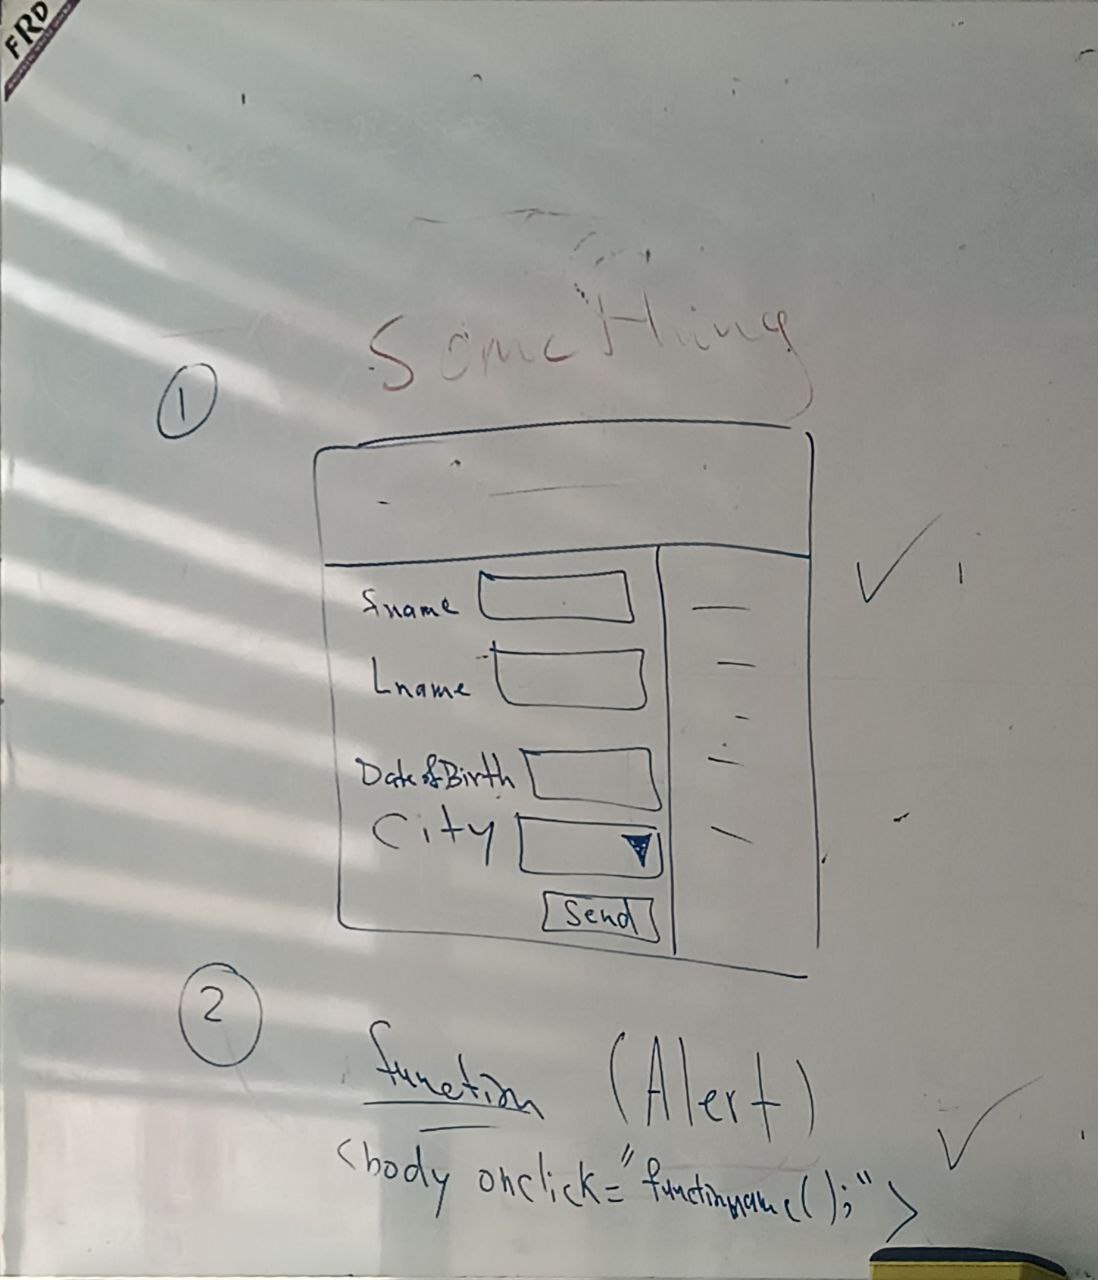 FRD
Something
1
fname
Lname
Date of Birth
City
Send
2
function (Alert)
<body onclick="functinname();">